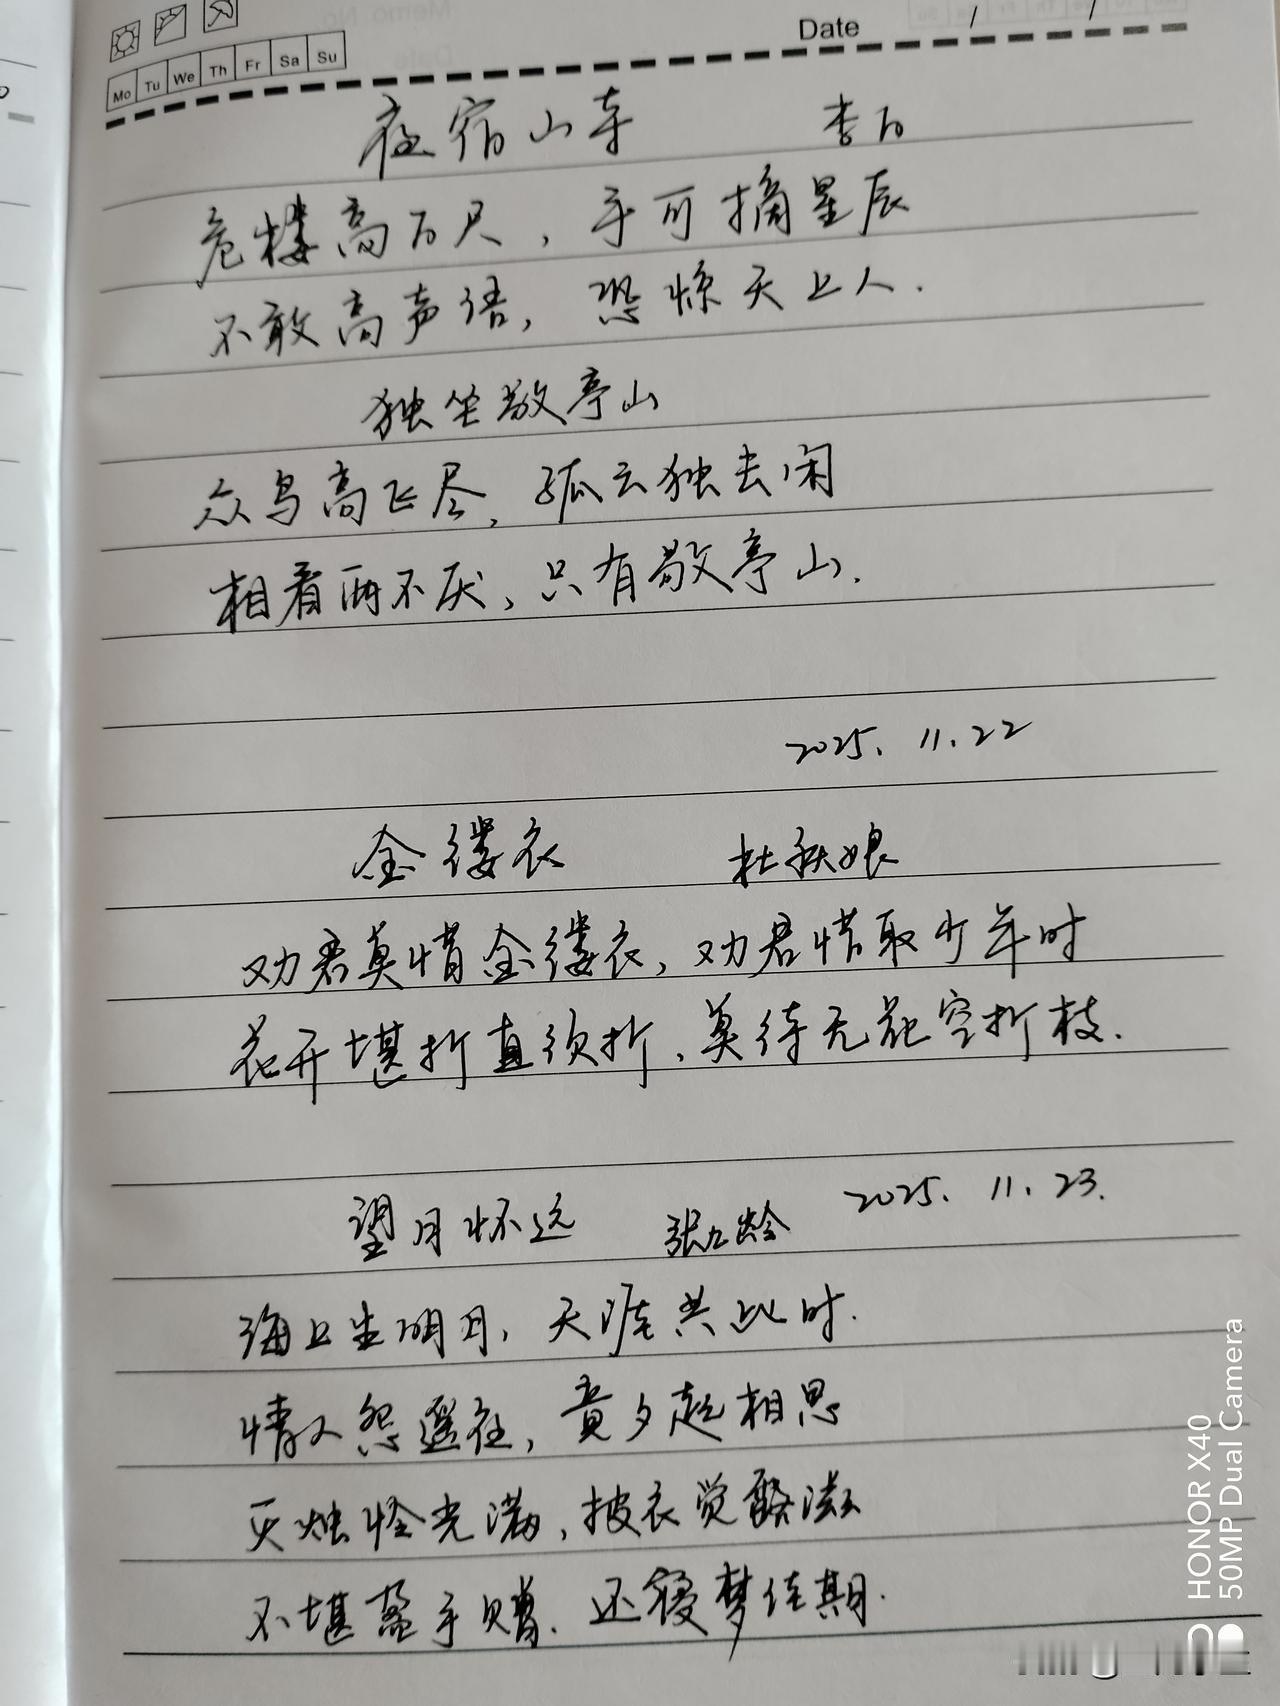 Memo No.
Date / /
Mo Tu We Th Fr Sa Su
夜宿山寺 李白
危楼高百尺，手可摘星辰
不敢高声语，恐惊天上人.
独坐敬亭山
众鸟高飞尽，孤云独去闲
相看两不厌，只有敬亭山.
2025. 11.22
金缕衣 杜秋娘
劝君莫惜金缕衣，劝君惜取少年时
花开堪折直须折，莫待无花空折枝.
2025. 11. 23.
望月怀远 张九龄
海上生明月，天涯共此时.
情人怨遥夜，竟夕起相思
灭烛怜光满，披衣觉露滋
不堪盈手赠. 还寝梦佳期.
HONOR X40
50MP Dual Camera